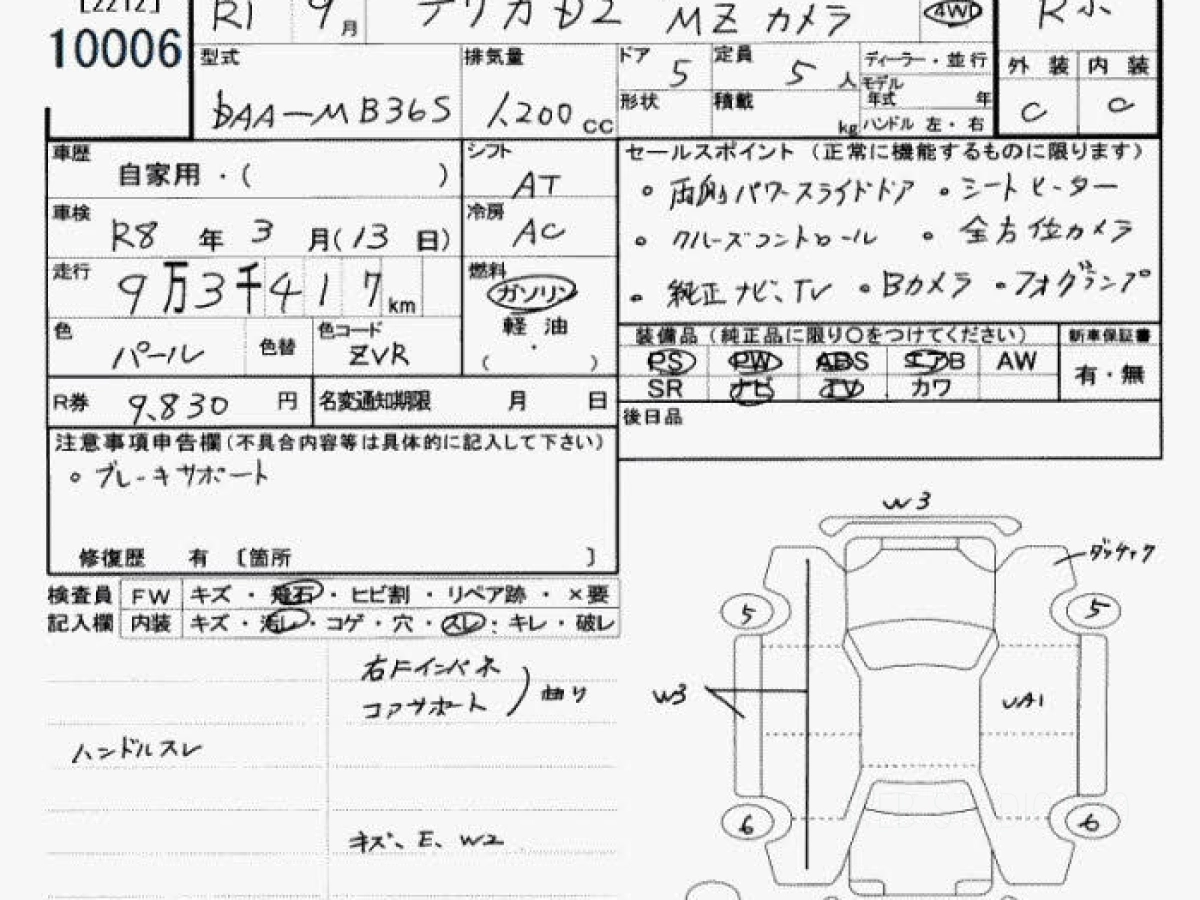 [2212]
10006
R1 9月 デリカD2 MZ カメラ 4WD R ホ
型式 DAA-MB36S
排気量 1,200 CC
ドア 5 定員 5 人
形状 積載 kg
ディーラー・並行
モデル年式 年
ハンドル 左・右
外装 内装
C C
車歴 自家用・( )
シフト AT
車検 R8 年 3 月(13 日)
冷房 AC
走行 9万3千417km
燃料 ガソリン
軽油
( ・ )
色 パール 色替 色コード ZVR
R券 9,830 円 名変通知期限 月 日
セールスポイント(正常に機能するものに限ります)
。両側パワースライドドア 。シートヒーター
。クルーズコントロール 。全方位カメラ
。純正ナビ、TV 。Bカメラ 。フォグランプ
装備品(純正品に限り〇をつけてください) 新車保証書
PS PW ABS エアB AW 有・無
SR ナビ TV カワ
後日品
注意事項申告欄(不具合内容等は具体的に記入して下さい)
。ブレーキサポート
修復歴 有 〔箇所 〕
検査員記入欄
FW キズ・飛石・ヒビ割・リペア跡・×要
内装 キズ・汚し・コゲ・穴・スレ・キレ・破レ
右Fインパネ
コアサポート ) 曲り
ハンドルスレ
キズ、E、W2
W3
5 5
W3 UA1
6 6